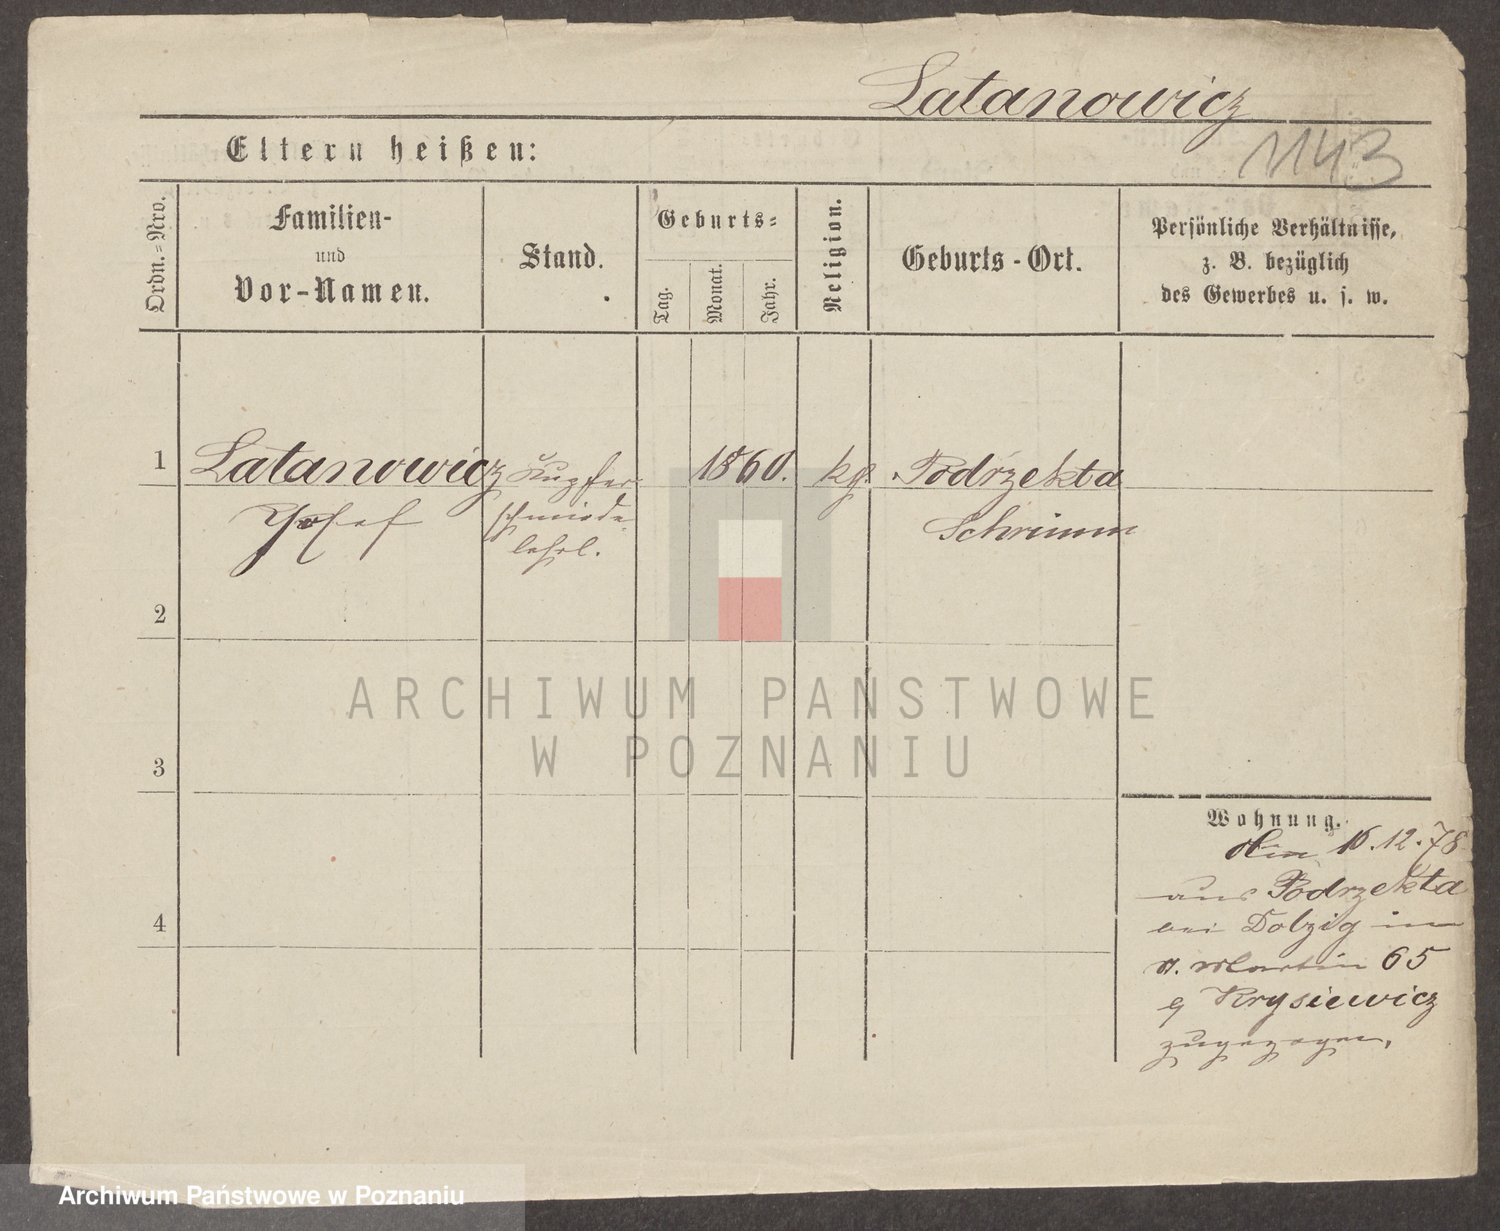 Latanowicz
1143
Eltern heißen:
Ordn.-Nro.
Familien-
und
Vor-Namen.
Stand.
Geburts-
Tag.
Monat.
Jahr.
Religion.
Geburts-Ort.
Persönliche Verhältnisse,
z. B. bezüglich
des Gewerbes u. s. w.
1
Latanowicz
Josef
Kupfer
schmiede-
lehrl.
1860.
kth.
Podrzekta
Schrimm
2
3
4
Wohnung.
Den 16.12.78
aus Podrzekta
bei Dolzig in
St. Martin 65
b/ Krysiewicz
zugezogen.
ARCHIWUM PAŃSTWOWE
W POZNANIU
Archiwum Państwowe w Poznaniu